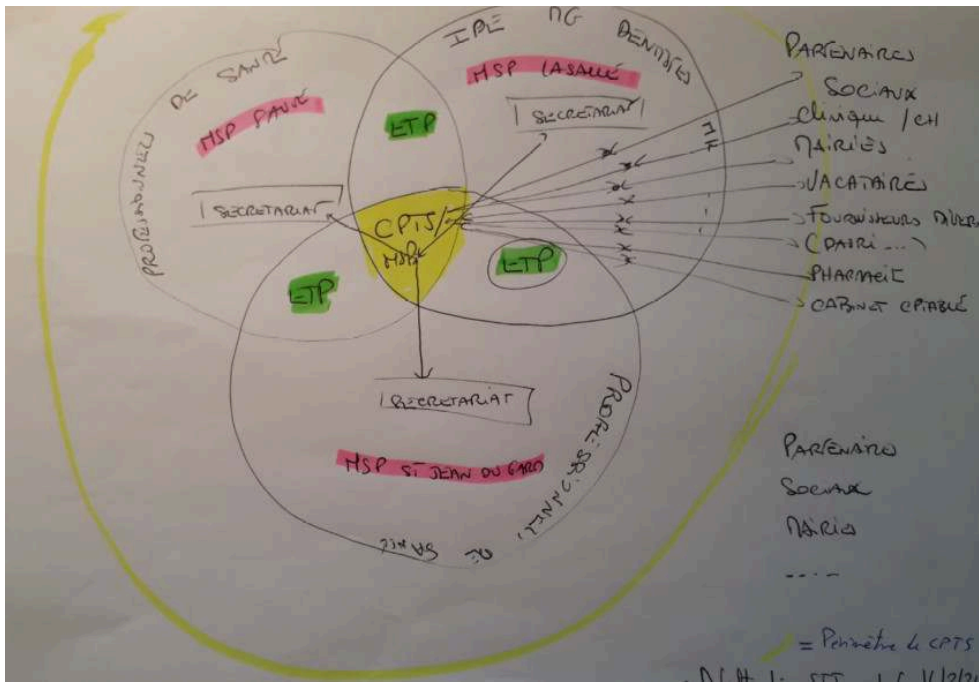 PROFESSIONNELS DE SANTÉ
MSP
1 SECRETARIAT
IPE MG DENTISTES
MK ...
MSP LASALLE
1 SECRETARIAT
ETP
CPTS/
MSP
ETP
ETP
1 SECRETARIAT
MSP ST JEAN DU GARD
PROFESSIONNELS DE SANTÉ
PARTENAIRES
SOCIAUX
Clinique / CH
MAIRIES
VACATAIRES
FOURNISSEURS DIVERS
PHARMACIE
CABINET CPTABLE
PARTENAIRES
SOCIAUX
MAIRIES
-----
= Périmètre de CPTS